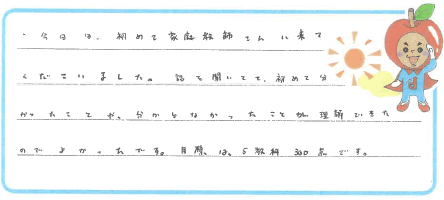 ・今日は、初めて家庭教師さんに来て
くださいました。話を聞いてて、初めて分
かったことや、分からなかったことが理解できた
のでよかったです。目標は、5教科300点です。